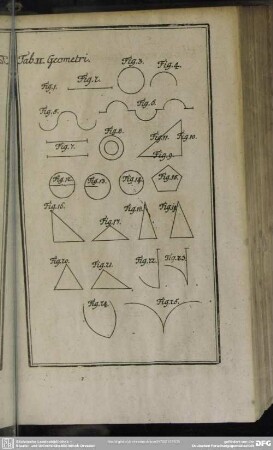 Tab. II. Geometri.
Fig. 1.
Fig. 2.
Fig. 3.
Fig. 4.
Fig. 5.
Fig. 6.
Fig. 7.
Fig. 8.
Fig. 11.
Fig. 10.
Fig. 9.
Fig. 12.
Fig. 13.
Fig. 14.
Fig. 16.
Fig. 17.
Fig. 18.
Fig. 19.
Fig. 20.
Fig. 21.
Fig. 22.
Fig. 23.
Fig. 24.
Fig. 25.
DFG